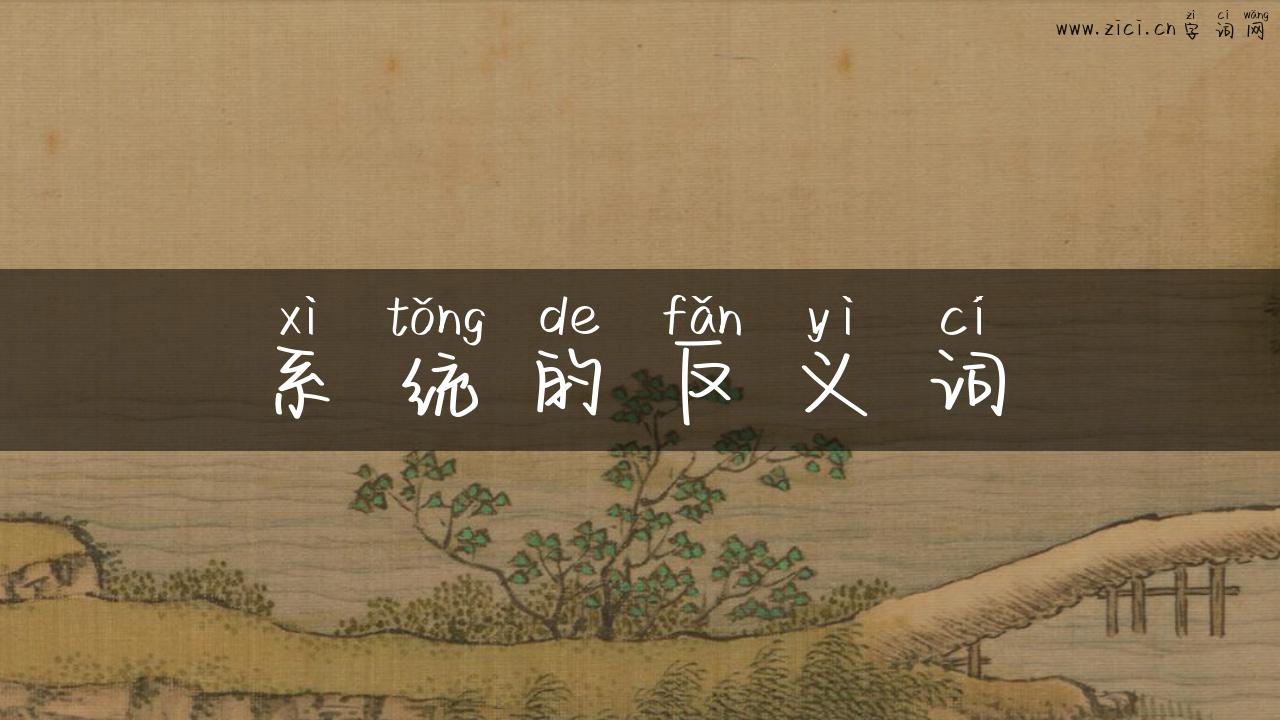 zì cí wǎng
www.zici.cn 字 词 网
xì tǒng de fǎn yì cí
系 统 的 反 义 词